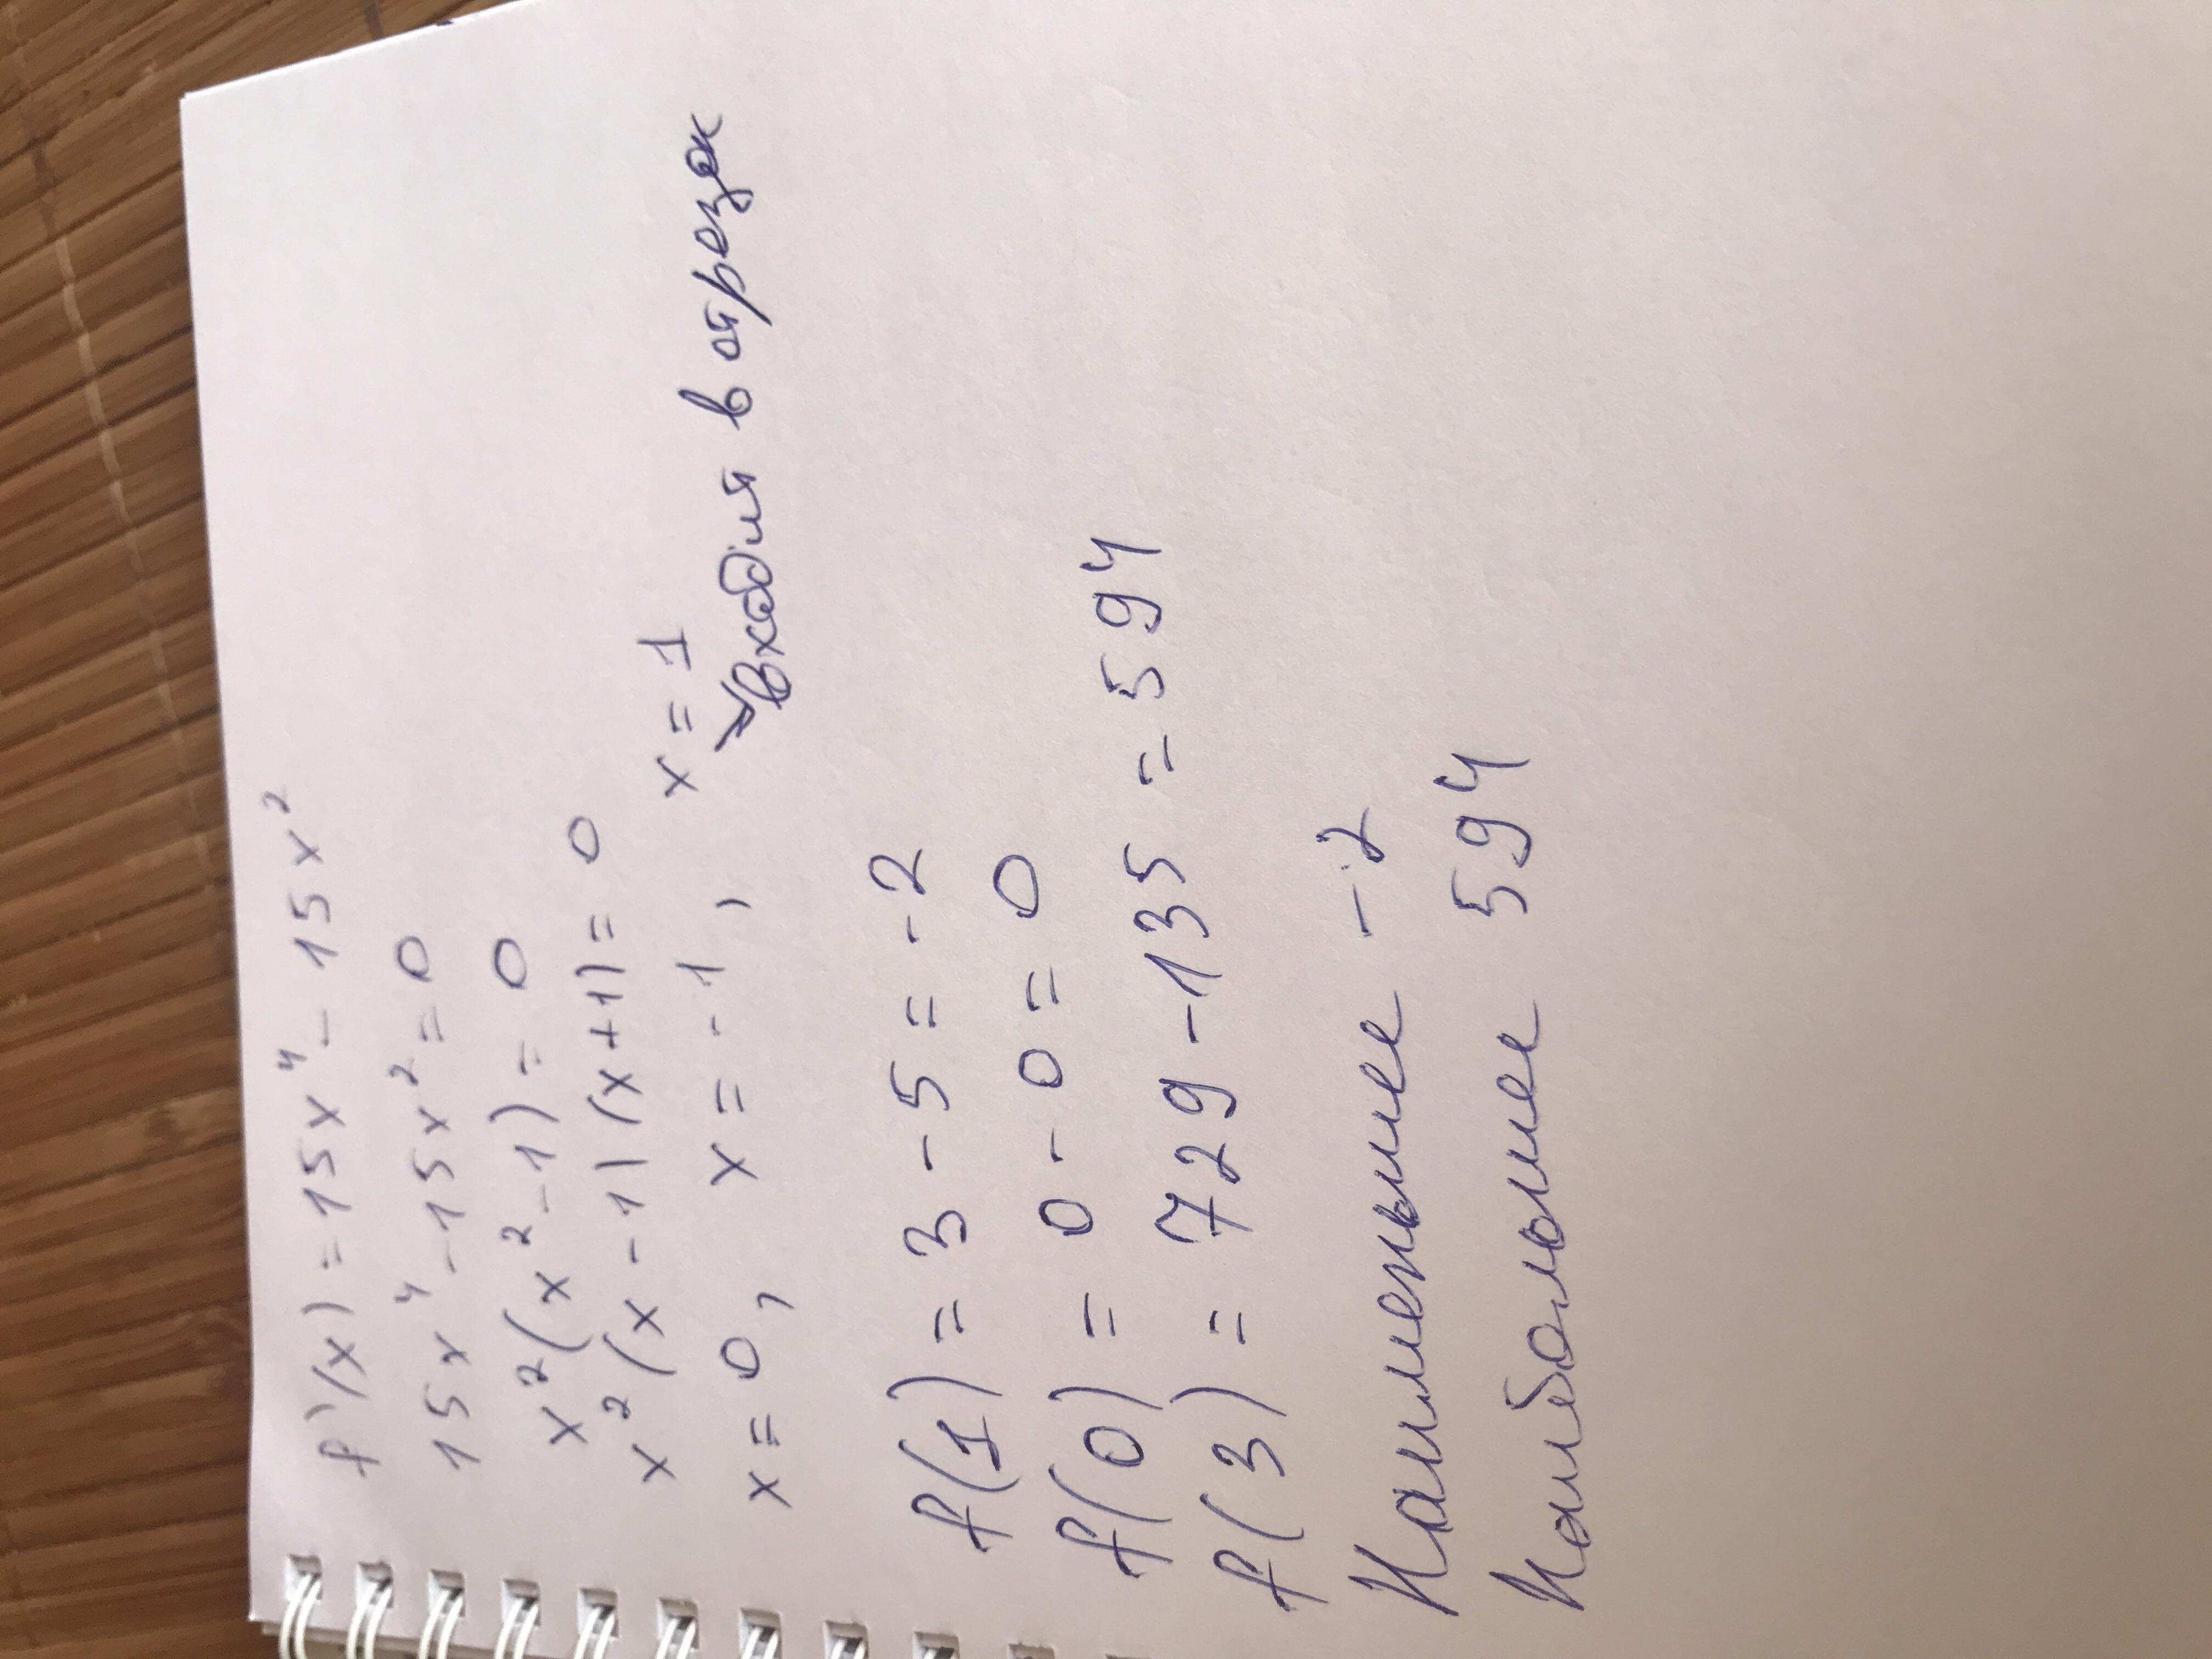 f'(x) = 15x⁴ - 15x²
15x⁴ - 15x² = 0
x²(x² - 1) = 0
x²(x - 1)(x + 1) = 0
x = 0, x = -1, x = 1
входит в отрезок
f(1) = 3 - 5 = -2
f(0) = 0 - 0 = 0
f(3) = 729 - 135 = 594
Наименьшее -2
Наибольшее 594